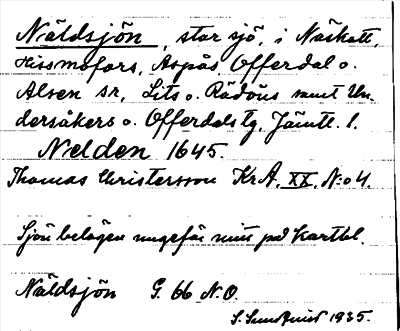 Näldsjön, stor sjö, i Näskott,
Hissmofors, Aspås, Offerdal o.
Alsen sn, Lits o. Rödöns samt Un-
dersåkers o. Offerdals tg, Jämtl. l.
Nelden 1645.
Thomas Christersson Kr A. XX. No 4.
Sjön belägen ungefär mitt på kartbl.
Näldsjön G. 66 N.O.
S. Sundquist 1935.